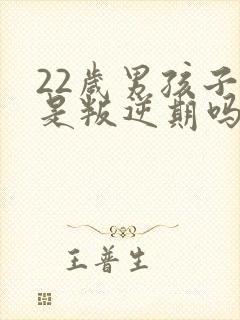 22岁男孩子
是叛逆期吗
王普生